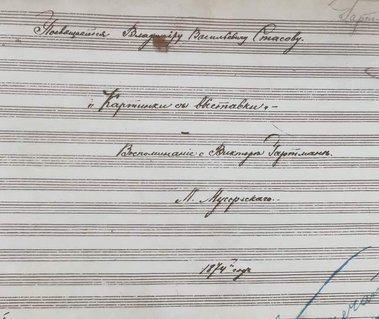 Посвящается Владиміру Васильевичу Стасову.
„Картинки съ выставки„
Воспоминаніе о Викторѣ Гартманѣ.
М. Мусоргскаго.
1874 годъ